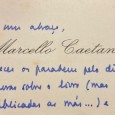 um abraço,
Marcello Caetano
os parabens pelo di
sobre o livro (mas
publicadas as más...) e